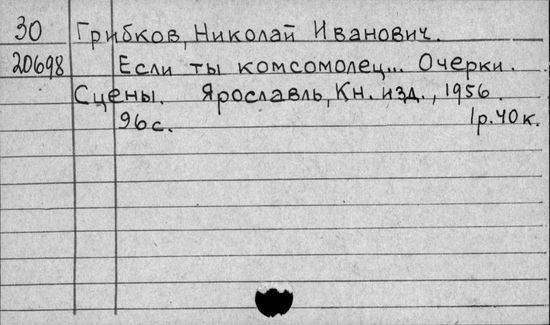 30 Грибков, Николай Иванович.
20698 Если ты комсомолец... Очерки.
Сцены. Ярославль, Кн. изд., 1956.
96 с. 1р. 40 к.